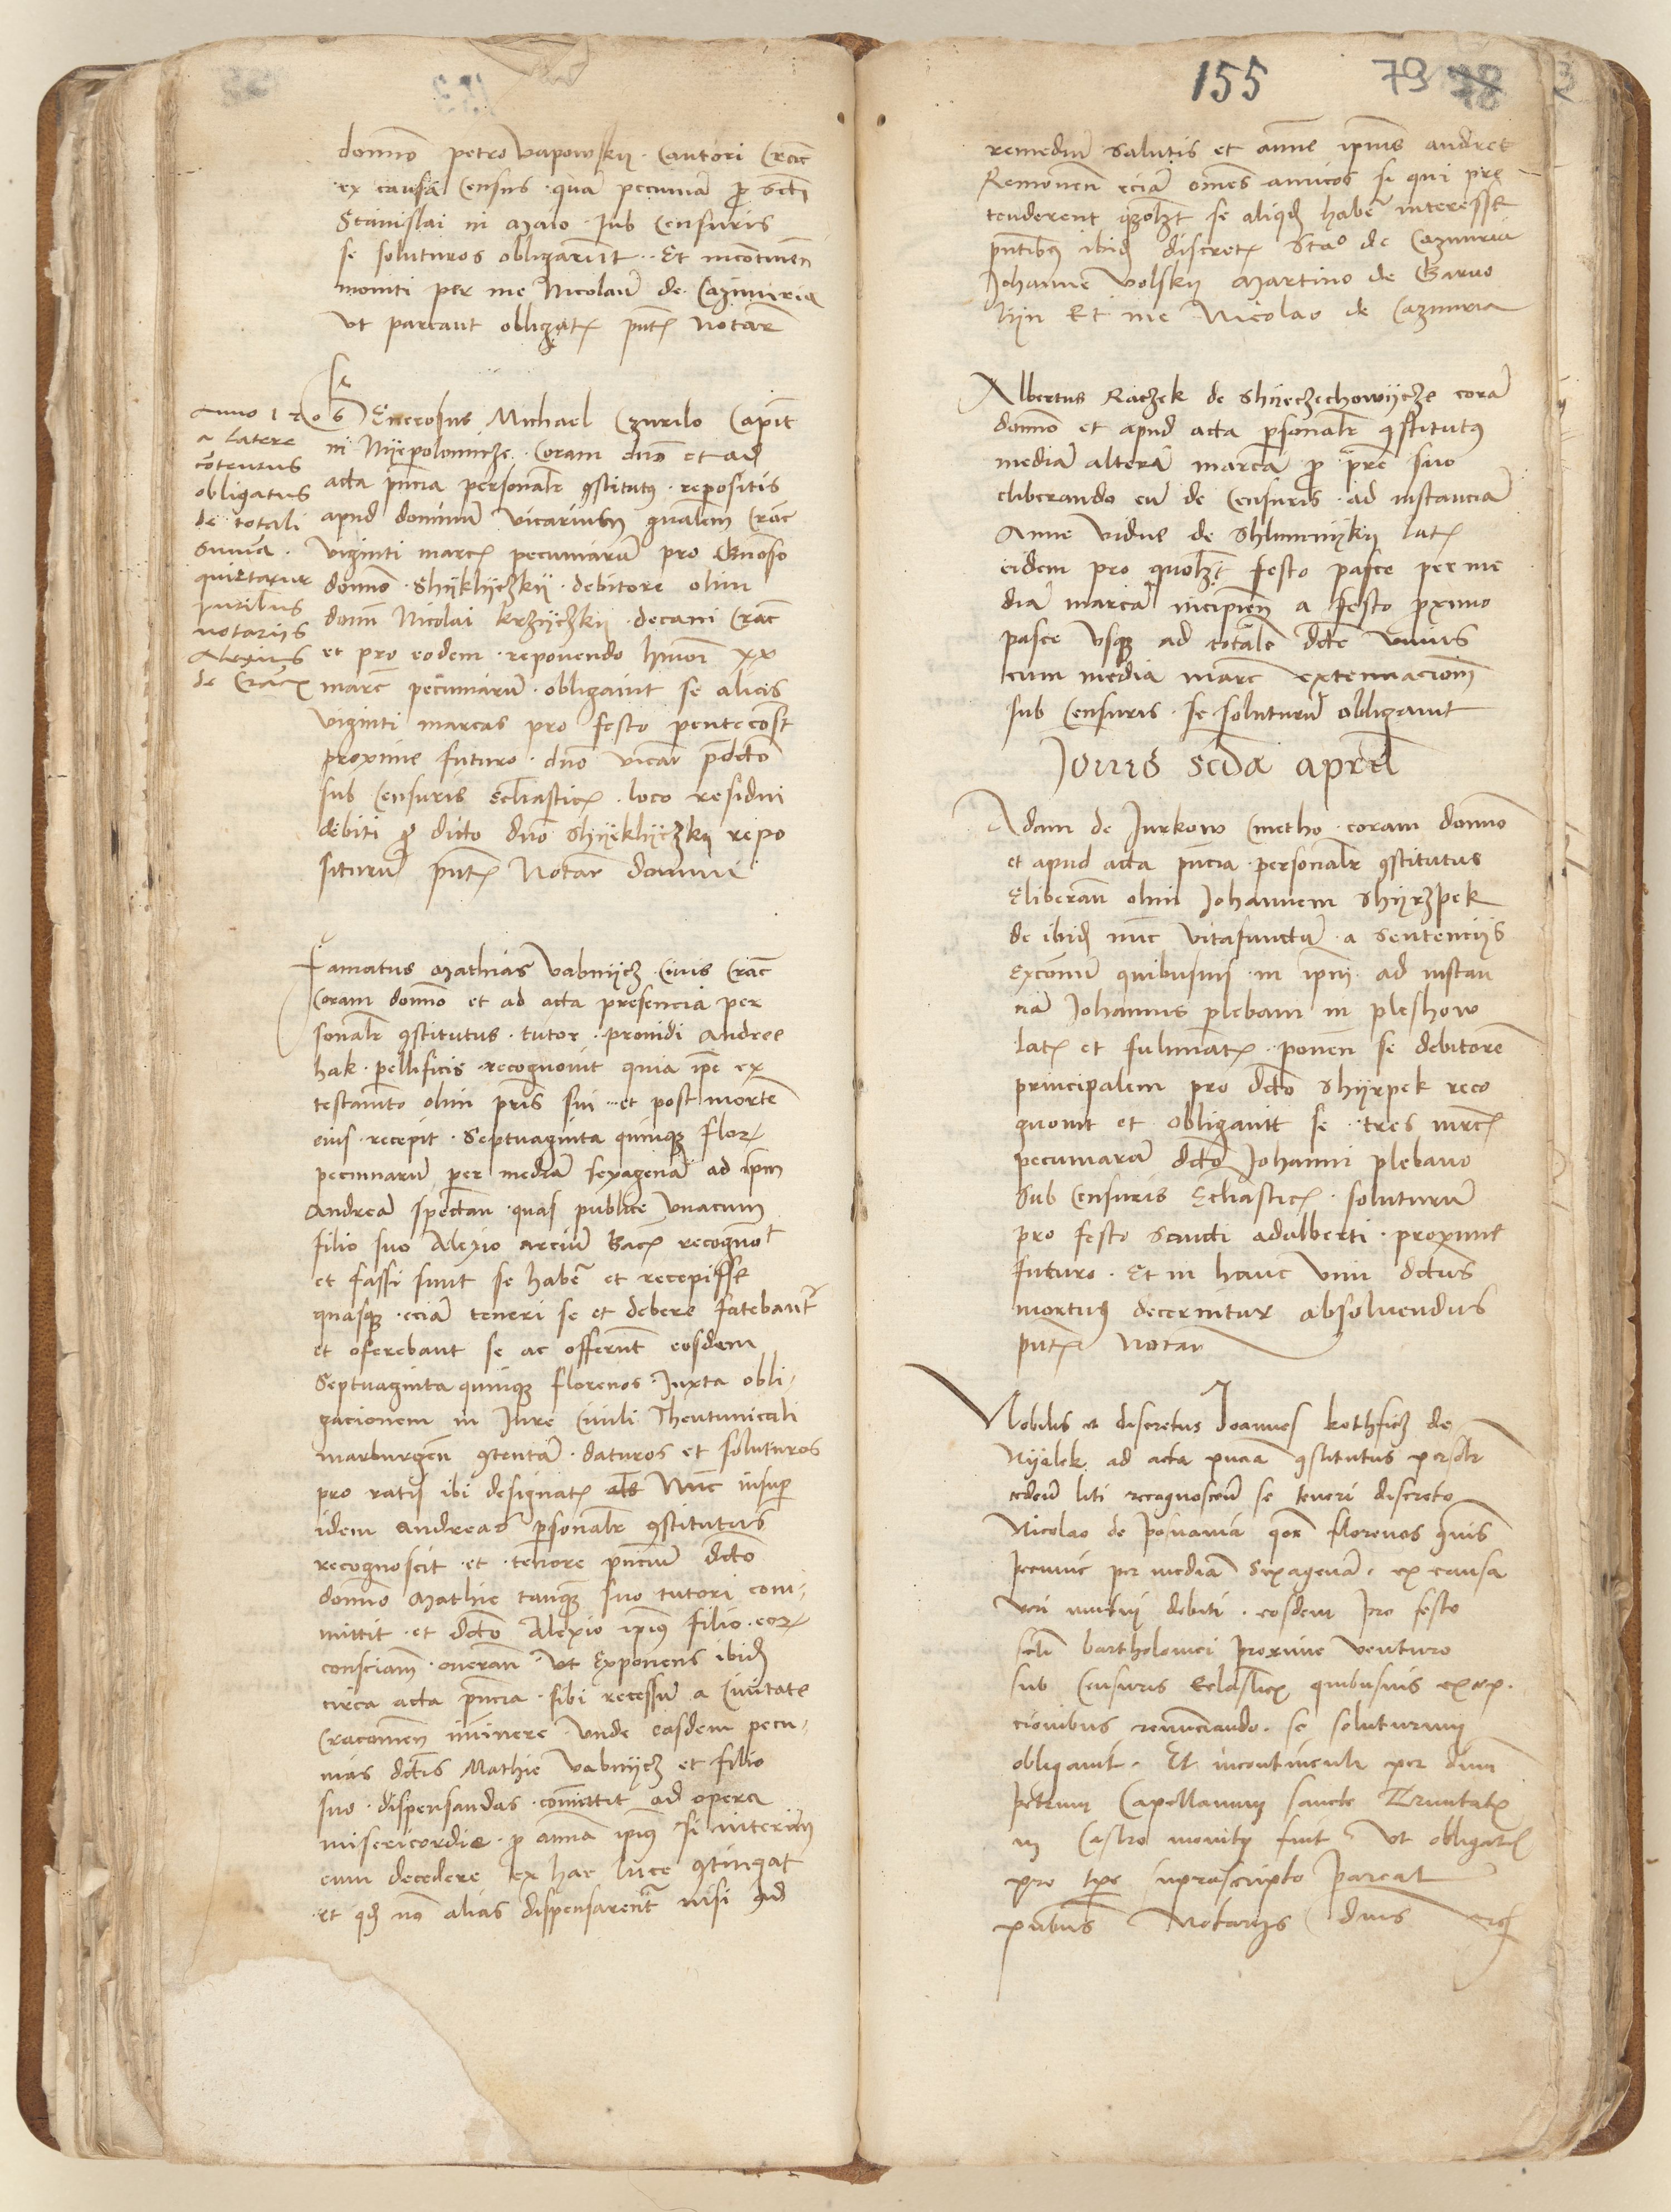 domino petro Vapowsky Cantori Crac
ex causa Census qua pecunia p scti
Stanislai in Maio sub Censuris
se soluturos obligarunt Et incontinen
moniti per me Nicolau de Cazimiria
Vt pareant obligat pnt Notar
Anno 1506
a latere
contentus
obligatus
de totali
summa
quietatur
pntibus
notariis
Alexius
de Crac
Generosus Michael Czurilo Capit
in Nyepolomicze Coram dno et ad
acta pncia personalr 9stitut9 repositis
apud dominum vicarium gnalem Crac
viginti marc pecuniaru pro Gnoso
domno Shyklyczky debitore olim
domi Nicolai Krzyczky decani Crac
et pro eodem reponendo hmoi xx
marc pecuniaru obligauit se alias
viginti marcas pro festo pentecost
proxime futuro dno vicar pdcto
sub Censuris ecliastic loco residui
debiti p dicto dno Shyeklyczky repo
situru pnt Notar domini
Famatus Mathias Vabnycz Ciuis Crac
Coram domno et ad acta presencia per
sonalr 9stitutus tutor prouidi Andree
hak pellificis recognouit quia ipe ex
testamto olim pris sui et post morte
eius recepit Septuaginta quinq flor
pecuniaru per media sexagena ad ipm
Andrea spectan quas publice vnacum
filio suo Alexio arciu Bac recognot
et fassi sunt se habe et recepisse
quasq ecia teneri se et debere fatebant
et oferebant se ac offerunt eosdem
Septuaginta quinq florenos Iuxta obli
gacionem in Iure Ciuili Theutunicali
marburgen 9tenta daturos et soluturos
pro ratis ibi designat als Nunc insup
idem Andreas personalr 9stitutus
recognoscit et tenore pnciu dcto
domno Mathie tanq suo tutori com
mittit et dcto Alexio ipius filio eor
consciam oneran Vt Exponens ibid
circa acta pncia sibi recessu a Ciuitate
Cracouien iminere vnde easdem pecu
nias dctis Mathie Vabnycz et filio
suo dispensandas committit ad opera
misericordie p anima ipius si interim
eum decedere ex hac luce 9tingat
et qd no alias dispensarent nisi ad
155 79 78
remediu salutis et anime ipius andree
Remouen ecia omes amicos si qui pre
tenderent quolzt se aliqd habe interesse
pntibus ibid discret Stao de Cazimiria
Johanne Volsky Martino de Garuo
lyn Et me Nicolao de Cazimiria
Albertus Raczek de Shyeczechowycze cora
domno et apud acta personalr 9stitut9
media altera marca p pre suo
eliberando eu de Censuris ad instancia
Anne vidue de Shlomnyky lat
eidem pro quolzt festo pasce per me
dia marca incipien a festo pximo
pasce vsq ad totale dcte vnius
cum media marc extenuacionem
sub Censuris se soluturu obligauit
Jouis scda aprilis
Adam de Jurkow Cmetho coram domno
et apud acta pncia personalr 9stitutus
Eliberan olim Johannem Shyrzpek
de ibid nunc vitafunctu a sentenciis
excomu quibusuis in ipm ad instan
cia Johannis plebani in pleshow
lat et fulminat ponen se debitore
principalem pro dcto Shyrpek reco
gnouit et obligauit se tres mrc
pecuniaru dcto Johanni plebano
Sub Censuris Ecliastic soluturu
pro festo Sancti adalberti proxime
futuro Et in hanc vim dctus
mortu9 decernitur absoluendus
pnt Notar
Nobilis et discretus Joannes kothficz de
Nyalek ad acta pncia 9stitutus personlr
cedeu liti recognosceu se teneri discreto
Nicolao de Posnania qor florenos
pecunie per media Sexagena ex causa
veri mutui debiti eosdem pro festo
scti bartholomei proxime venturo
sub Censuris Eclastic quibusuis excep
cionibus renunciando se soluturum
obligauit Et incontinenti per dnm
petrum Capellanum sancte Trinitatis
in Castro monit9 fuit Vt obligat
pro tpe suprascripto pareat
pntibus Notariis dnis